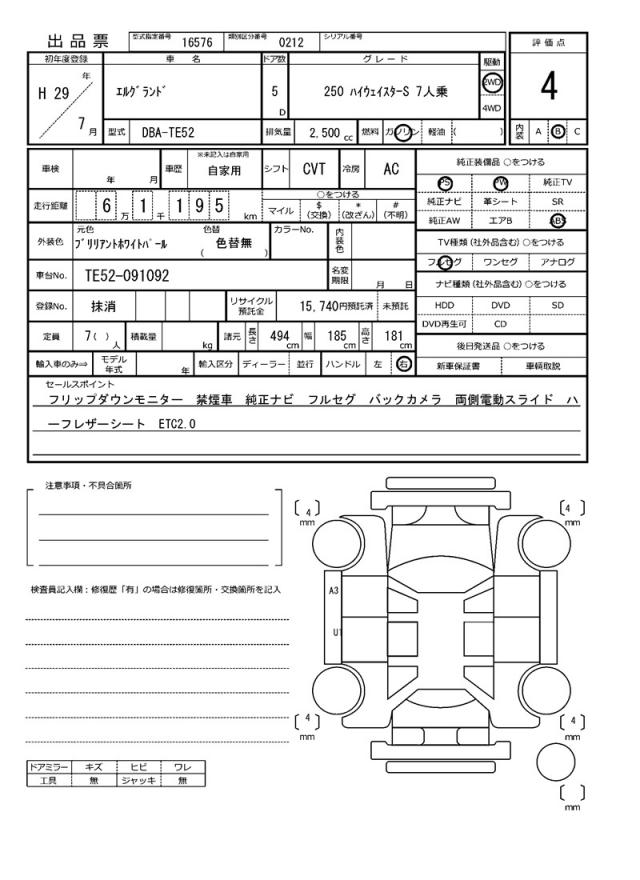 出品票 型式指定番号 16576 類別区分番号 0212 シリアル番号
初年度登録 車名 ドア数 グレード 駆動 評価点
H 29 年 7 月 エルグランド 5 D 250 ハイウェイスターS 7人乗 2WD 4WD 4
型式 DBA-TE52 排気量 2,500 cc 燃料 ガソリン 軽油 ( ) 内装 A B C
車検 年 月 車歴 ※未記入は自家用 自家用 シフト CVT 冷房 AC 純正装備品 ○をつける
PS PW 純正TV
走行距離 6 万 1 千 1 9 5 km ○をつける 純正ナビ 革シート SR
マイル $ (交換) * (改ざん) # (不明) 純正AW エアB ABS
外装色 元色 ブリリアントホワイトパール 色替 ( 色替無 ) カラーNo. 内装色 TV種類 (社外品含む) ○をつける
フルセグ ワンセグ アナログ
車台No. TE52-091092 名変期限 月 日 ナビ種類 (社外品含む) ○をつける
登録No. 抹消 リサイクル預託金 15,740円預託済 未預託 HDD DVD SD
DVD再生可 CD
定員 7( ) 人 積載量 kg 諸元 長さ 494 cm 幅 185 cm 高さ 181 cm 後日発送品 ○をつける
輸入車のみ⇒ モデル年式 年 輸入区分 ディーラー 並行 ハンドル 左 右 新車保証書 車輌取説
セールスポイント
フリップダウンモニター 禁煙車 純正ナビ フルセグ バックカメラ 両側電動スライド ハ
ーフレザーシート ETC2.0
注意事項・不具合箇所
[ 4 ] mm [ 4 ] mm
検査員記入欄：修復歴「有」の場合は修復箇所・交換箇所を記入
A3
U1
[ 4 ] mm [ 4 ] mm
ドアミラー キズ ヒビ ワレ
工具 無 ジャッキ 無
[ ] mm